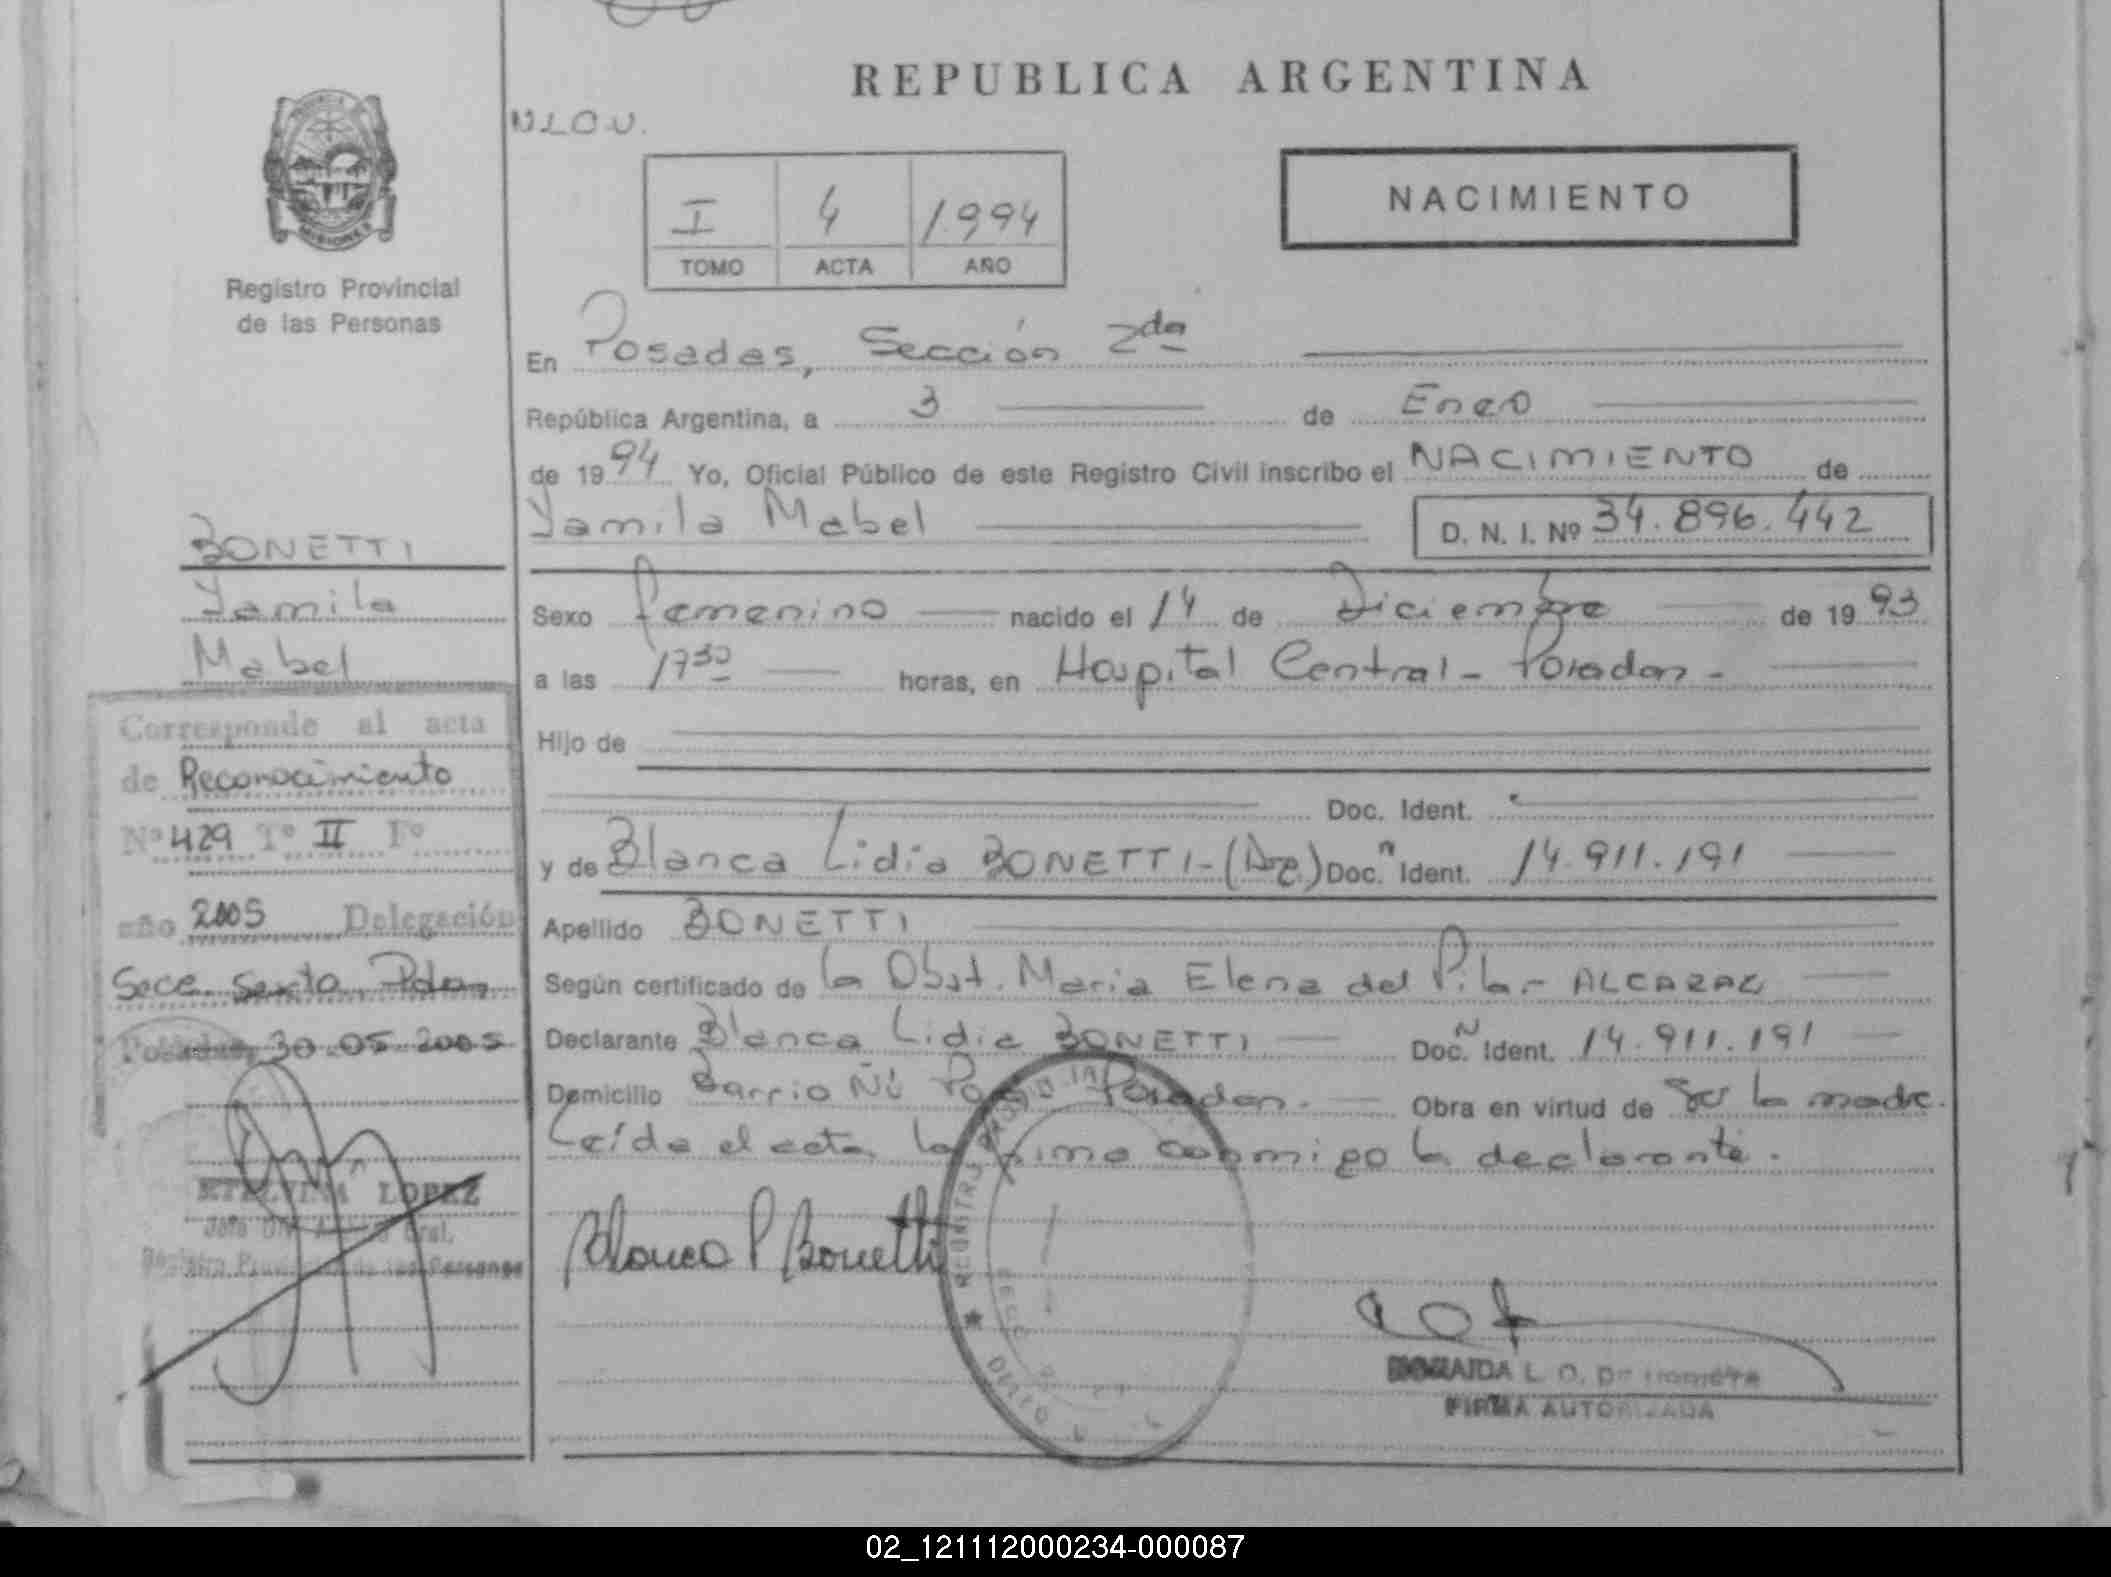 REPUBLICA ARGENTINA
NACIMIENTO
I 4 1994
TOMO ACTA AÑO
MISIONES
Registro Provincial
de las Personas
En Posadas, Sección 2da
República Argentina, a 3 de Enero
de 1994 Yo, Oficial Público de este Registro Civil inscribo el NACIMIENTO de
Yamila Mabel D. N. I. Nº 34.896.442
Sexo femenino nacido el 14 de Diciembre de 1993
a las 1730 horas, en Hospital Central - Posadas -
Hijo de
Doc. Ident.
y de Blanca Lidia BONETTI - (Arg.) Doc.n Ident. 14.911.191
Apellido BONETTI
Según certificado de la Obst. Maria Elena del Pilar ALCARAZ
Declarante Blanca Lidia BONETTI Doc.N Ident. 14.911.191
Domicilio Barrio Ñu Posadas. Obra en virtud de Ser la madre.
Leída el acta la firma conmigo la declarante.
Blanca Bonetti
FIRMA AUTORIZADA
BONETTI
Yamila
Mabel
Corresponde al acta
de Reconocimiento
Nº 429 Tº II Fº
año 2005 Delegación
Secc. Sexta Pdas
Posadas, 30.05.2005
ETELVINA LOPEZ
Registro Provincial de las Personas
02_121112000234-000087